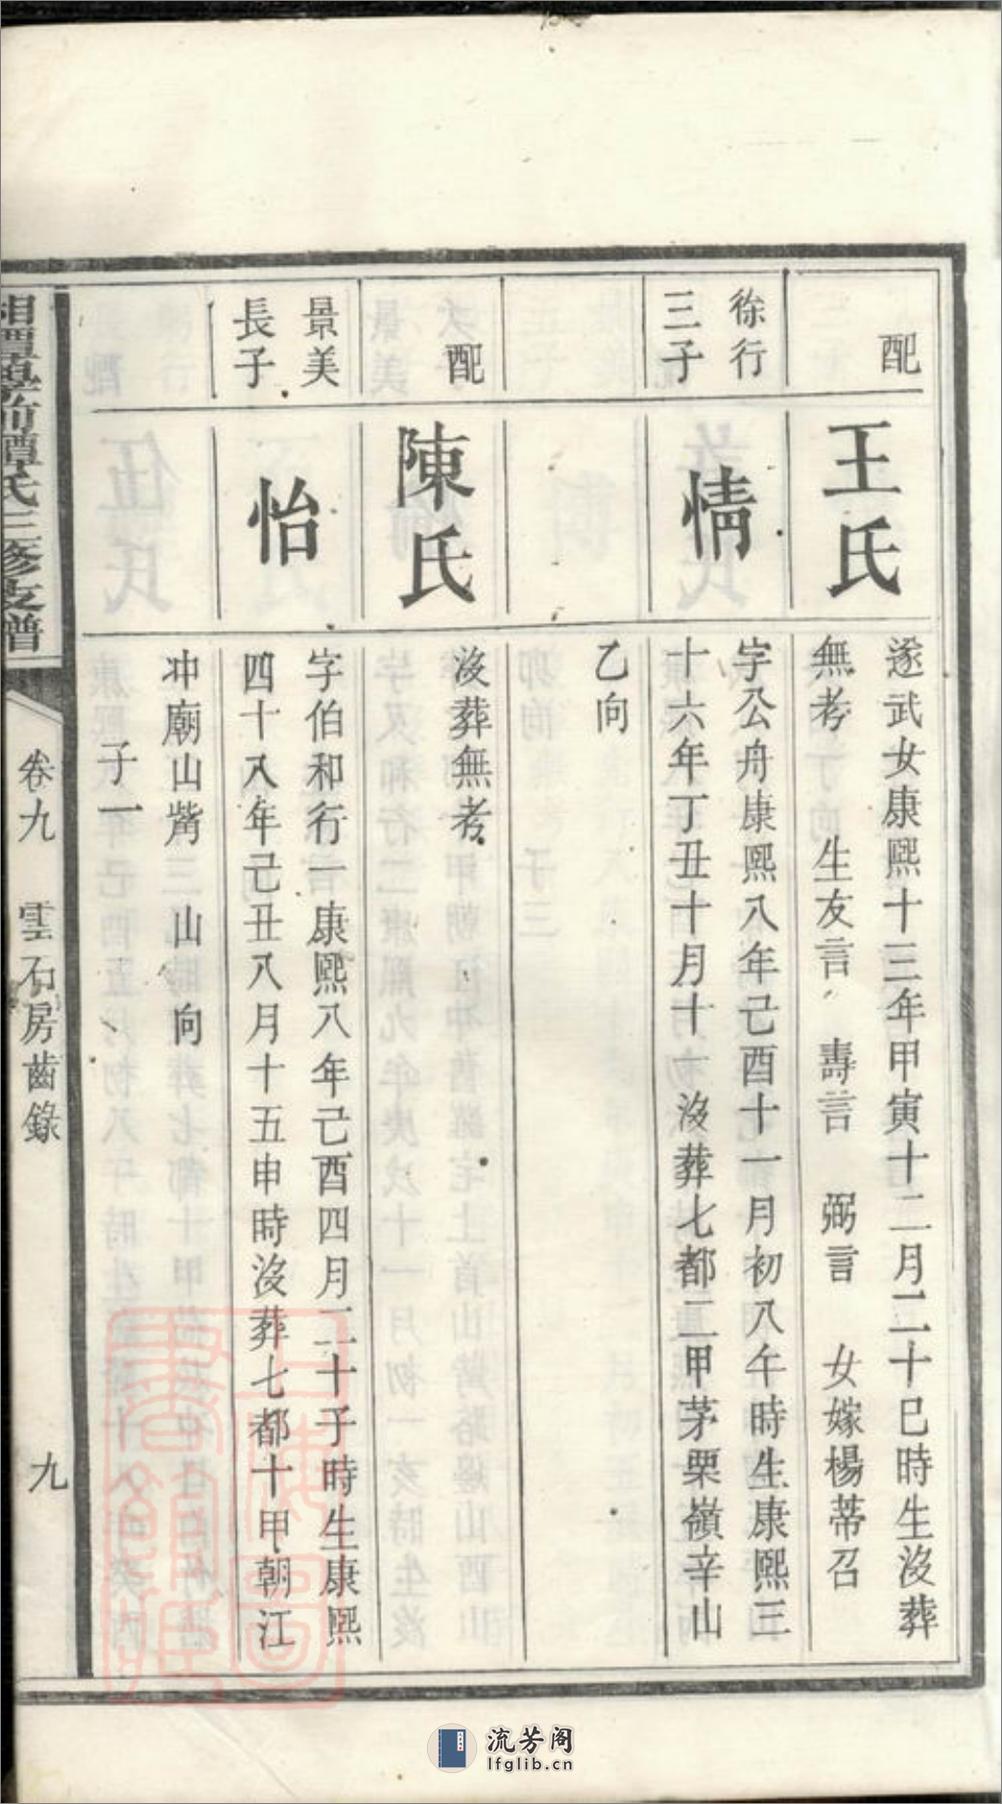 配
王氏
遂武女康熙十三年甲寅十二月二十巳時生沒葬
無考 生友言 壽言 弼言 女嫁楊蒂召
徐行
三子
情
字公舟康熙八年己酉十一月初八午時生康熙三
十六年丁丑十月十一沒葬七都二甲茅栗嶺辛山
乙向
配
陳氏
沒葬無考
景美
長子
怡
字伯和行一康熙八年己酉四月二十子時生康熙
四十八年己丑八月十五申時沒葬七都十甲朝江
冲廟山觜 山向
子一
氏三修支譜
卷九 雲石房齒錄 九
流芳阁
lfglib.cn